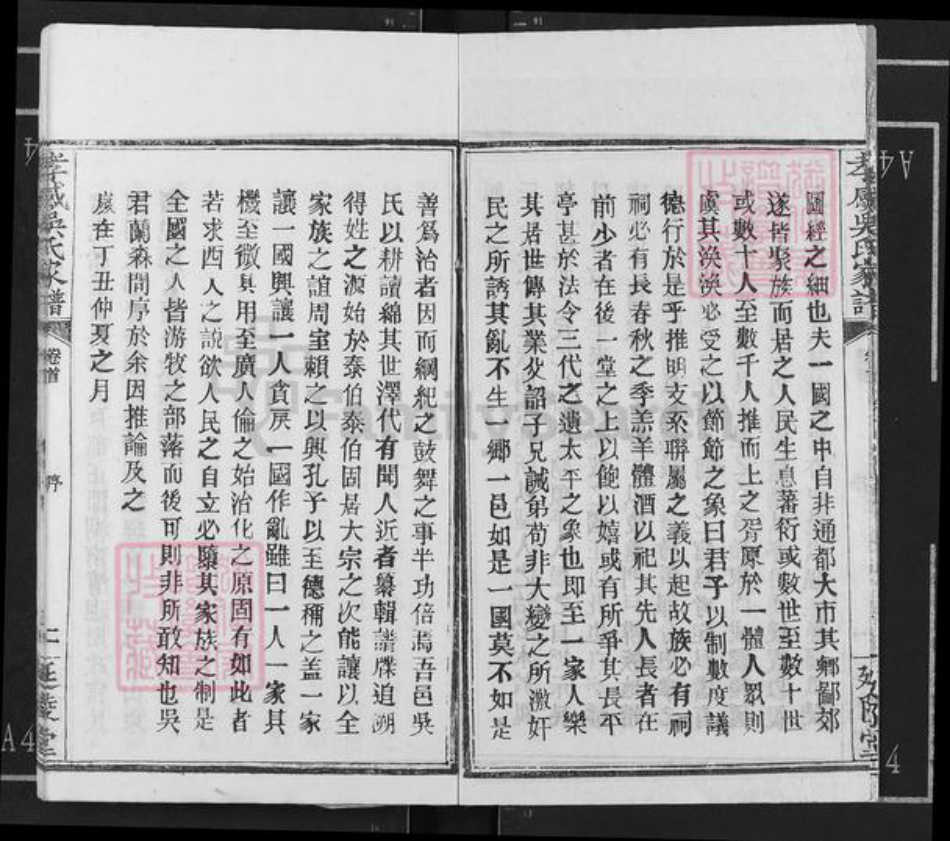 圖經之細也夫一國之中自非通都大市其鄉鄙郊
遂皆聚族而居之人民生息蕃衍或數世至數十世
或數十人至數千人推而上之胥原於一體人眾則
虞其渙渙必受之以節節之象曰君子以制數度議
德行於是乎推明支系聯屬之義以起故族必有祠
祠必有長春秋之季羔羊體酒以祀其先人長者在
前少者在後一堂之上以飽以嬉或有所爭其長平
亭甚於法令三代之遺太平之象也即至一家人樂
其居世傳其業父詔子兄誡弟苟非大變之所激奸
民之所誘其亂不生一鄉一邑如是一國莫不如是
善為治者因而綱紀之鼓舞之事半功倍焉吾邑吳
氏以耕讀綿其世澤代有聞人近者纂輯譜牒追溯
得姓之源始於泰伯泰伯固居大宗之次能讓以全
家族之誼周室賴之以興孔子以至德稱之蓋一家
讓一國興讓一人貪戾一國作亂雖曰一人一家其
機至微其用至廣人倫之始治化之原固有如此者
若求西人之說欲人民之自立必隳其家族之制是
全國之人皆游牧之部落而後可則非所敢知也吳
君蘭森問序於余因推論及之
歲在丁丑仲夏之月
孝感吳氏家譜
卷首
序
二
延陵堂
FamilySearch
A4